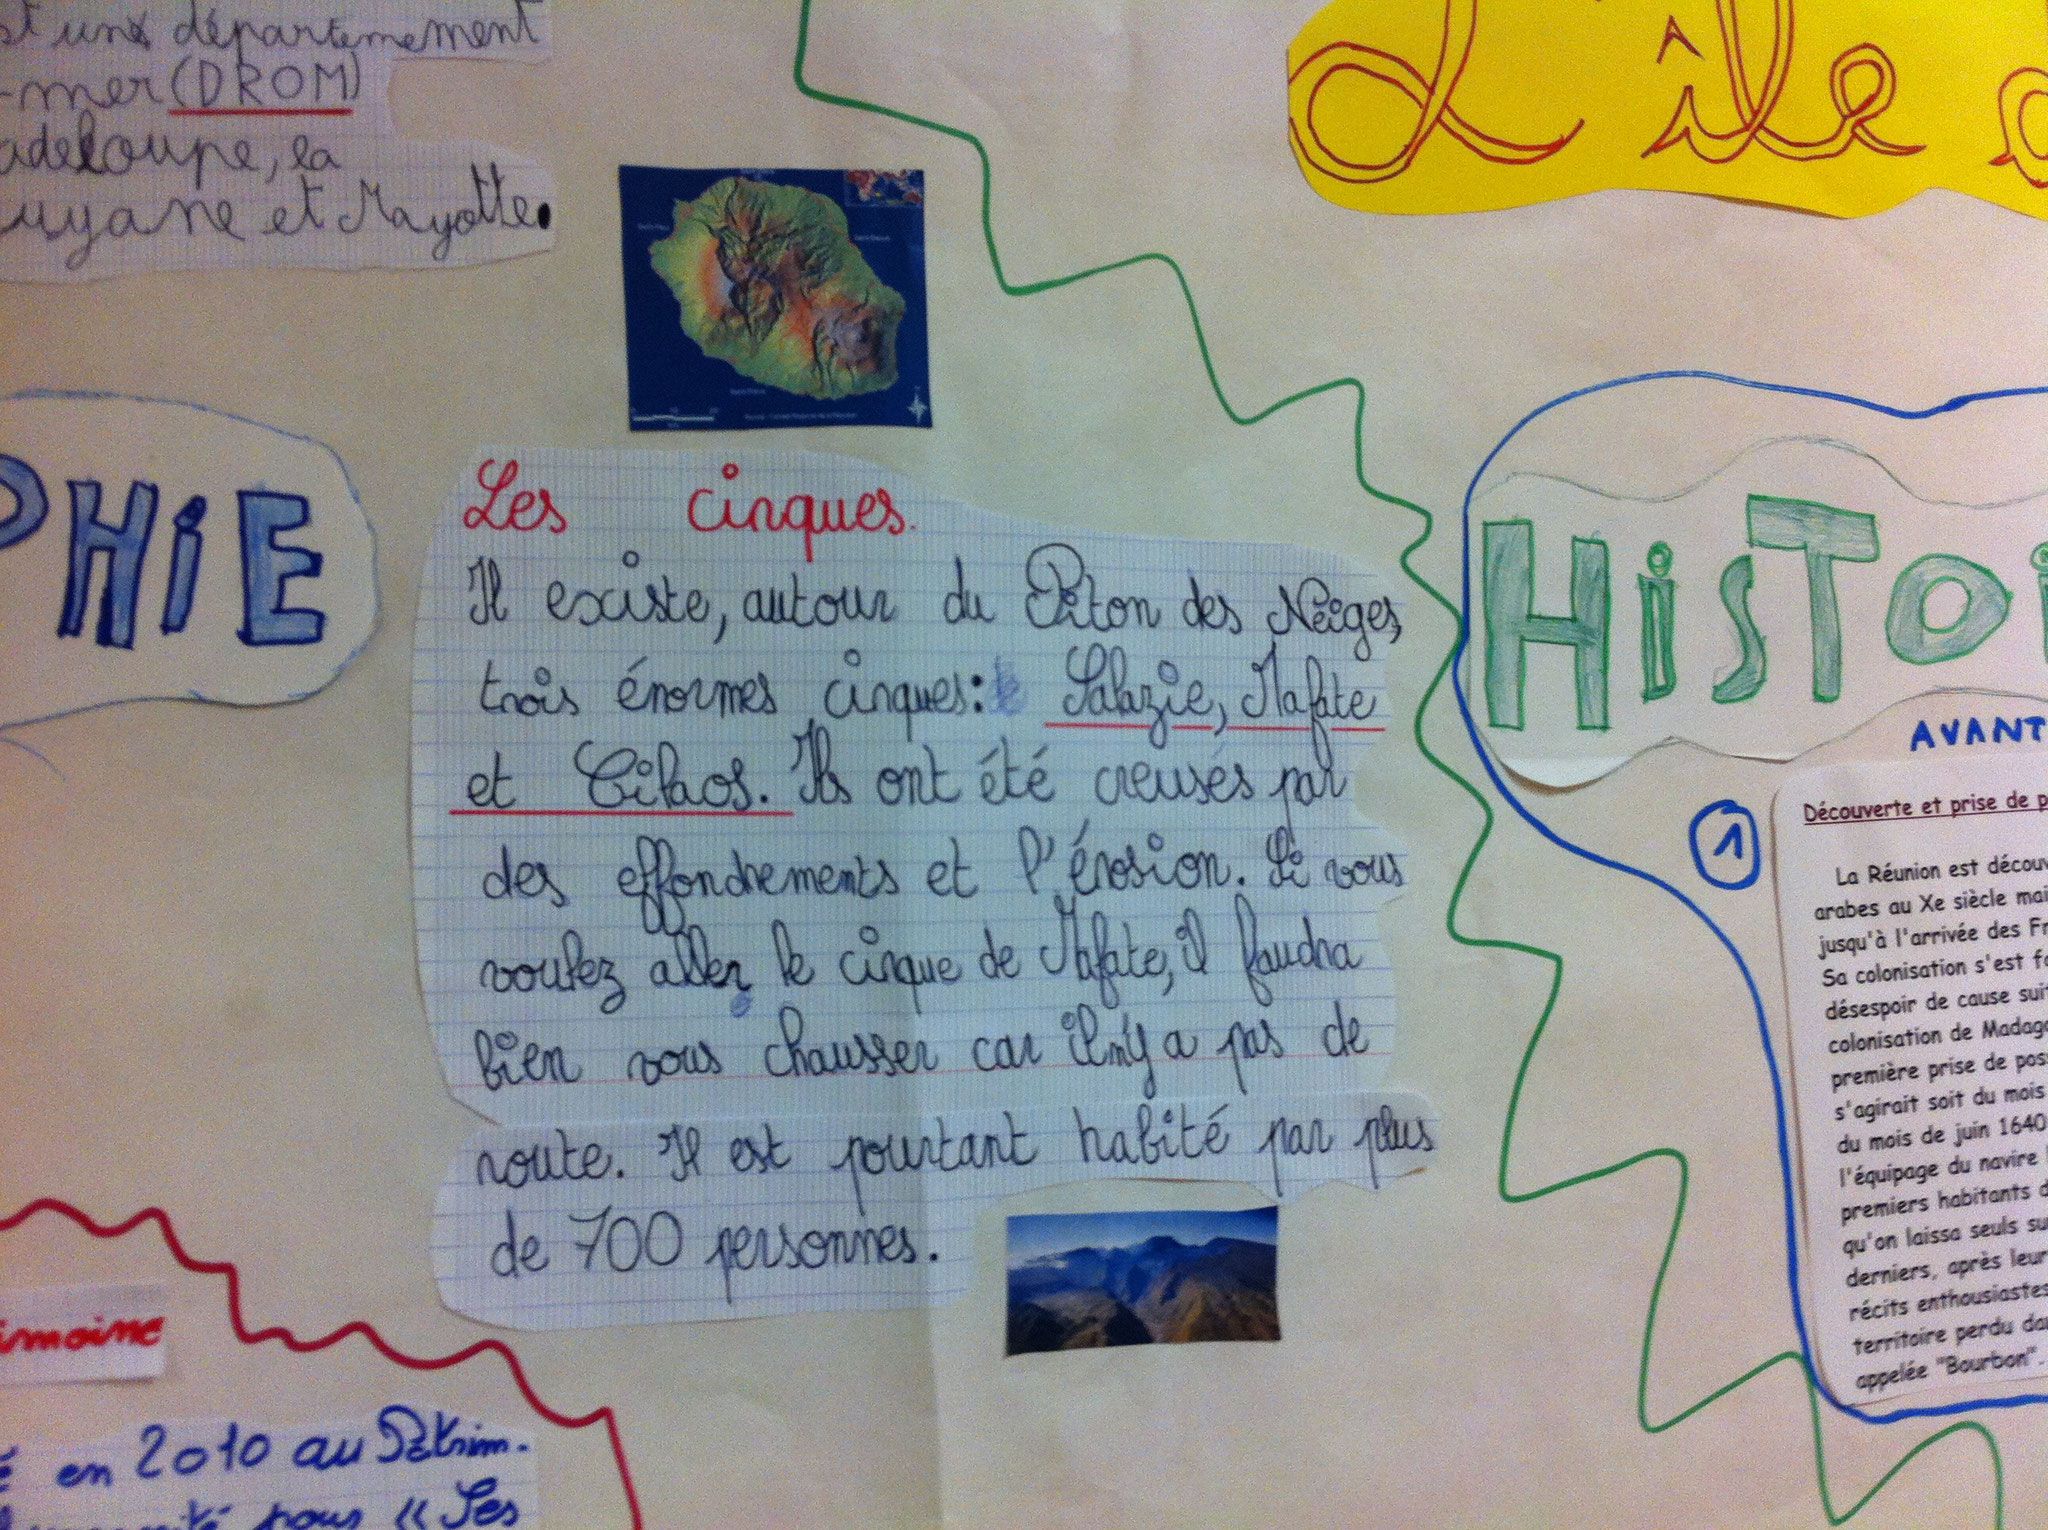 st une département
-mer (DROM)
adeloupe, la
uyane et Mayotte.
L'île d
PHIE
Les cirques.
Il existe, autour du Piton des Neiges,
trois énormes cirques: Salazie, Mafate
et Cilaos. Ils ont été creusés par
des effondrements et l'érosion. Si vous
voulez aller le cirque de Mafate, il faudra
bien vous chausser car il n'y a pas de
route. Il est pourtant habité par plus
de 700 personnes.
HISTOI
AVANT
1
Découverte et prise de p
La Réunion est découv
arabes au Xe siècle mai
jusqu'à l'arrivée des Fr
Sa colonisation s'est fa
désespoir de cause suit
colonisation de Madaga
première prise de poss
s'agirait soit du mois
du mois de juin 1640
l'équipage du navire
premiers habitants d
qu'on laissa seuls su
derniers, après leur
récits enthousiastes
territoire perdu da
appelée "Bourbon".
imoine
é en 2010 au Patrim.
pour « Les